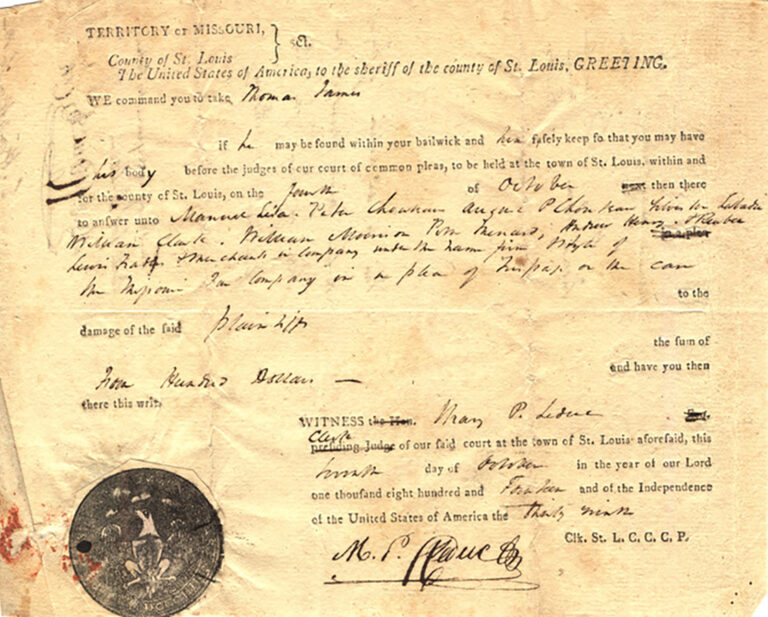 TERRITORY OF MISSOURI,
County of St. Louis } sct.
The United States of America, to the sheriff of the county of St. Louis, GREETING.
WE command you to take Thomas James
if he may be found within your bailwick and him safely keep so that you may have
his body before the judges of our court of common pleas, to be held at the town of St. Louis, within and
for the county of St. Louis, on the fourth of October next then there
to answer unto Manuel Lisa. Peter Chouteau August P Chouteau
William Clark. William Morrison Menard, Andrew Henry. & Reuben
Lewis & Merchants in company under the name firm & style of
the Missouri Fur Company in a plea of Trespass on the case
to the
damage of the said plaintiffs
the sum of
Hundred Dollars —
and have you then
there this writ.
WITNESS the Hon. Mary P. Leduc
Clerk
presiding Judge of our said court at the town of St. Louis aforesaid, this
day of October in the year of our Lord
one thousand eight hundred and Fourteen and of the Independence
of the United States of America the Thirty ninth
M. P. Leduc Clk. St. L. C. C. C. P.